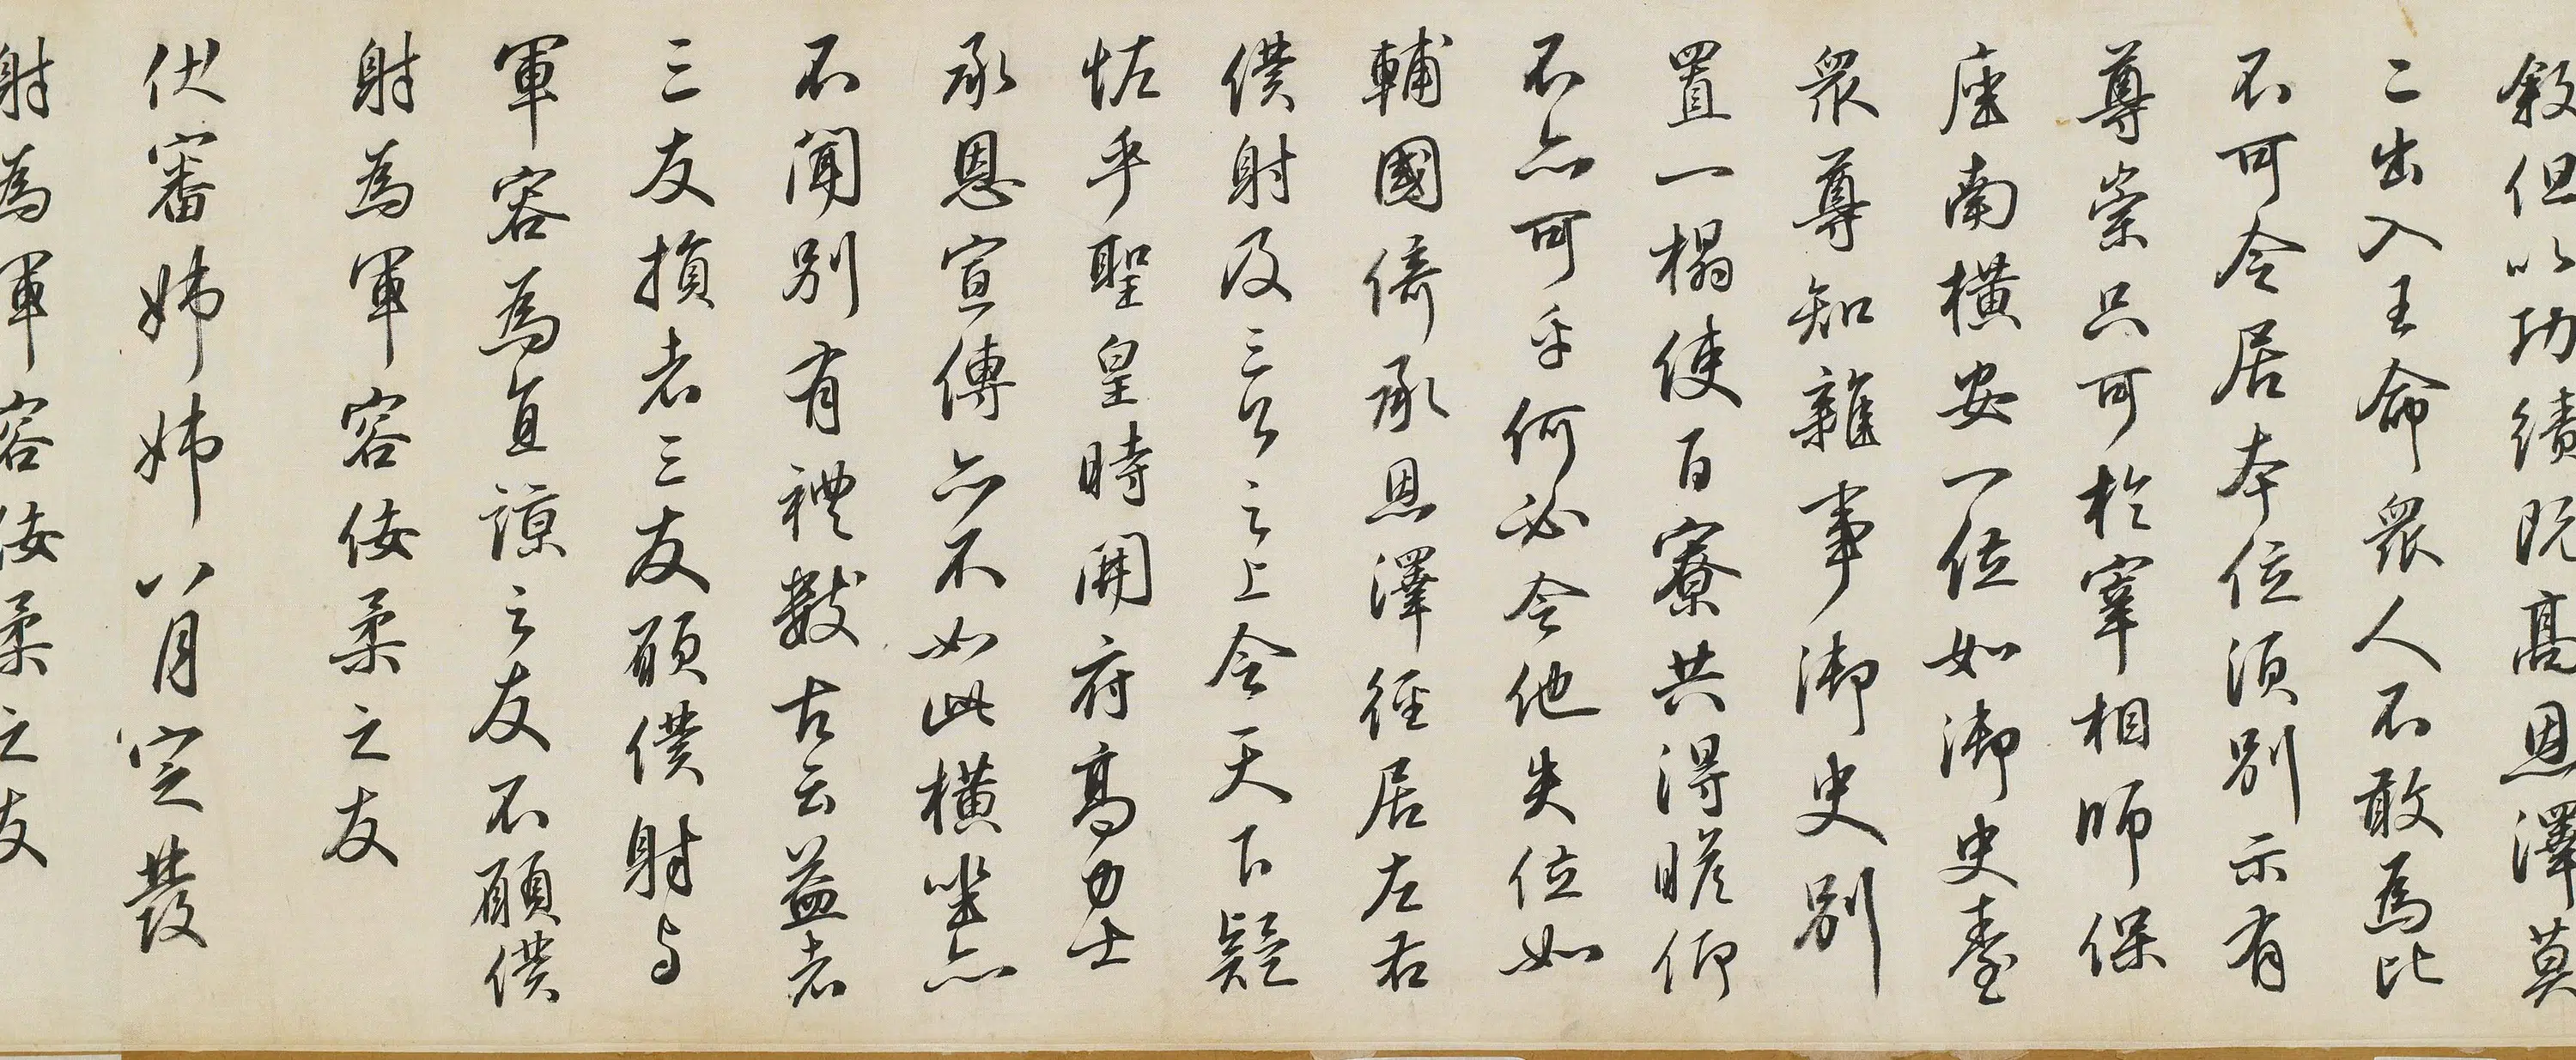 敘但以功績既高恩澤莫
二出入王命眾人不敢為比
不可令居本位須別示有
尊崇只可於宰相師保
座南橫安一位如御史臺
眾尊知雜事御史別
置一榻使百寮共得瞻仰
不亦可乎何必令他失位如
輔國倚承恩澤徑居左右
僕射及三公之上令天下疑
怪乎聖皇時開府高力士
承恩宣傳亦不如此橫坐亦
不聞別有禮數古云益者
三友損者三友願僕射與
軍容為直諒之友不願僕
射為軍容佞柔之友
伏審姊姊八月定發
射為軍容佞柔之友